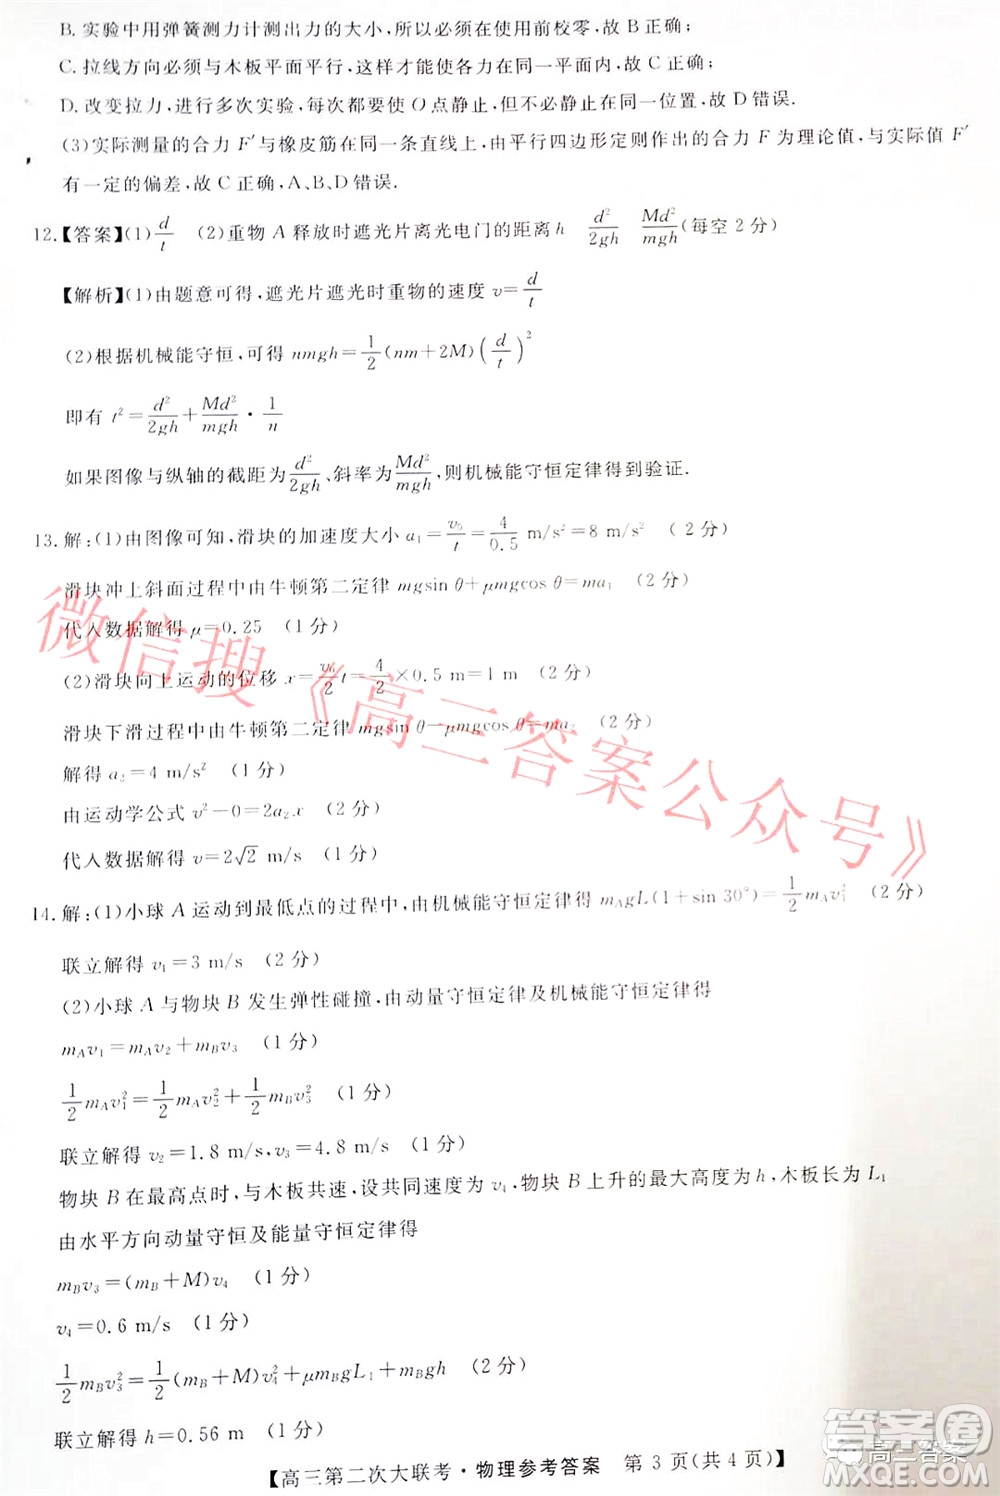 B. 实验中用弹簧测力计测出力的大小,所以在使用前校零,故 B 正确;
C. 拉线方向必须与木板平面平行,这样才确保力的平行四边形在同一平面内,故 C 正确;
D. 改变拉力,进行多次实验,每次都要使 O 点静止,但不必静止在同一位置,故 D 错误.
(3)实际测量的合力 F′与橡皮筋在同一条直线上,由平行四边形定则作出的合力 F 为理论值,与实际值 F′
有一定的偏差,故 C 正确,A、B、D 错误.
12.【答案】(1) d/t (2)重物 A 释放时遮光片离光电门的距离 h d²/2gh Md²/mgh (每空 2 分)
【解析】(1)由题意可得,遮光片遮光时重物的速度 v=d/t
(2)根据机械能守恒,可得 nmgh=1/2(nm+2M)(d/t)²
即有 t²=d²/2gh+Md²/mgh·1/n
如果图像与纵轴的截距为d²/2gh,斜率为Md²/mgh,则机械能守恒定律得到验证.
13.解:(1)由图像可知,滑块的加速度大小 a₁=v₀/t=4/0.5 m/s²=8 m/s² (2 分)
滑块冲上斜面过程中由牛顿第二定律 mgsin θ+μmgcos θ=ma₁ (2 分)
代入数据解得 μ=0.25 (1 分)
(2)滑块向上运动的位移 x=v₀/2 t=4/2×0.5 m=1 m (1 分)
滑块下滑过程中由牛顿第二定律 mgsin θ−μmgcos θ=ma₂ (2 分)
解得 a₂=4 m/s² (1 分)
由运动学公式 v²−0=2a₂x (2 分)
代入数据解得 v=2√2 m/s (1 分)
14.解:(1)小球 A 运动到最低点的过程中,由机械能守恒定律得 m_A gL(1+sin 30°)=1/2 m_A v₁² (2 分)
联立解得 v₁=3 m/s (2 分)
(2)小球 A 与物块 B 发生弹性碰撞,由动量守恒定律及机械能守恒定律得
m_A v₁=m_A v₂+m_B v₃ (1 分)
1/2 m_A v₁²=1/2 m_A v₂²+1/2 m_B v₃² (1 分)
联立解得 v₂=1.8 m/s,v₃=4.8 m/s (1 分)
物块 B 在最高点时,与木板共速,设共同速度为 v₄,物块 B 上升的最大高度为 h,木板长为 L₁
由水平方向动量守恒及能量守恒定律得
m_B v₃=(m_B+M)v₄ (1 分)
v₄=0.6 m/s (1 分)
1/2 m_B v₃²=1/2(m_B+M)v₄²+μm_B gL₁+m_B gh (2 分)
联立解得 h=0.56 m (1 分)
【高三第二次大联考·物理参考答案 第 3 页(共 4 页)】
微信搜《高三答案公众号》
答案圈
高三答案
MXQE.COM